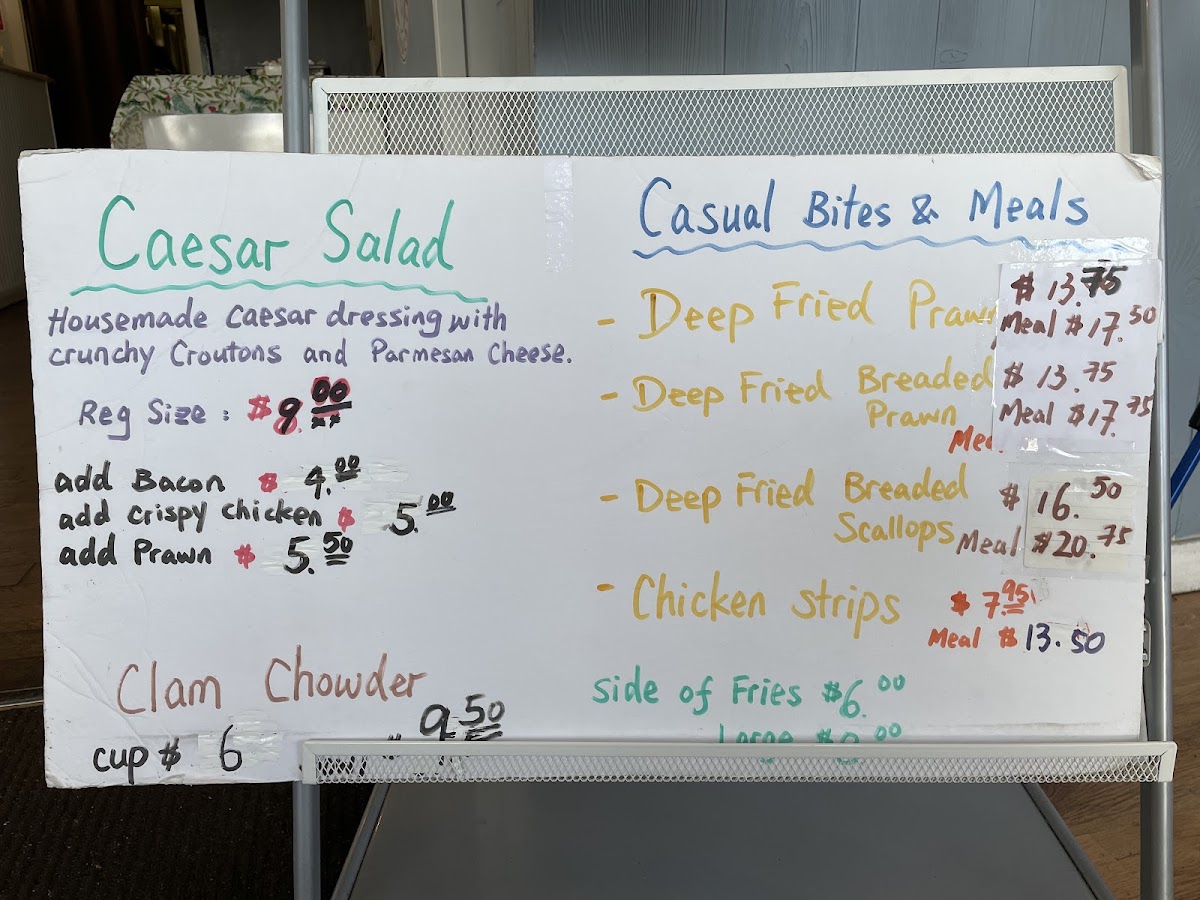 Caesar Salad
Housemade Caesar dressing with
crunchy Croutons and Parmesan Cheese.
Reg Size : $9.00
add Bacon $ 4.00
add crispy chicken $ 5.00
add Prawn $ 5.50
Clam Chowder
cup $ 6
9.50
Casual Bites & Meals
- Deep Fried Prawn $13.75
Meal $17.50
- Deep Fried Breaded $13.75
Prawn Meal $17.75
- Deep Fried Breaded $16.50
Scallops Meal $20.75
- Chicken strips $7.95
Meal $13.50
side of Fries $6.00
Large